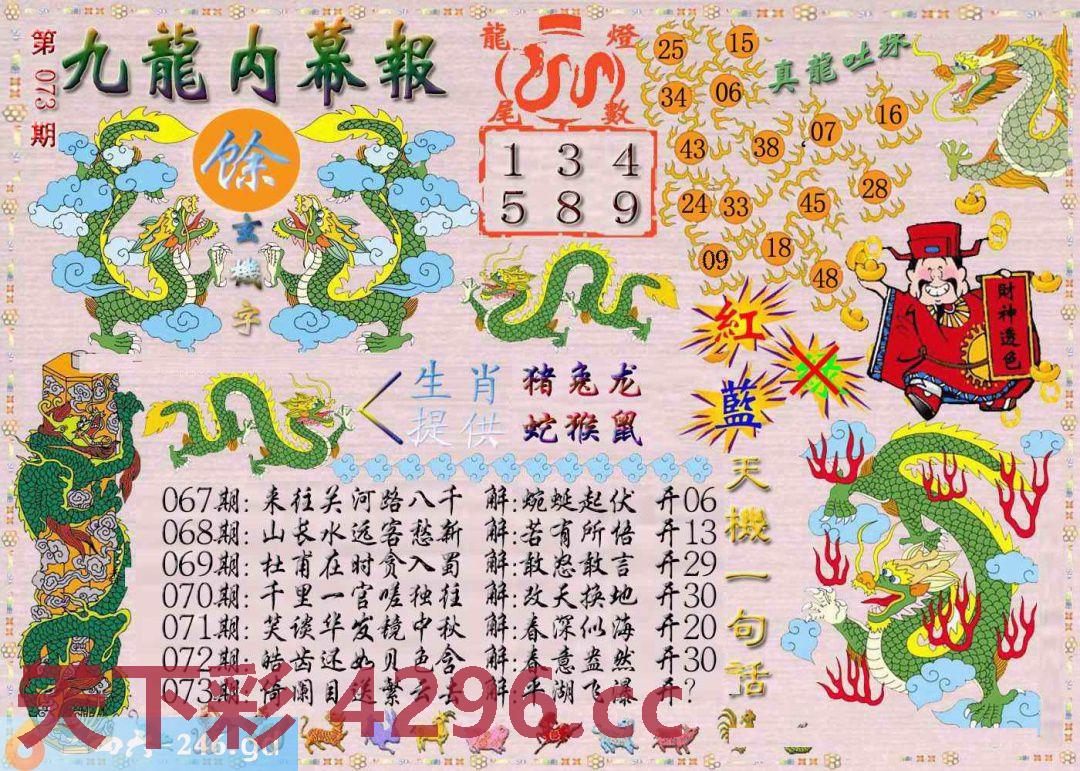 第073期
九龍内幕報
馀
玄機字
龍尾燈數
1 3 4
5 8 9
真龍吐珠
25 15
34 06
43 38 07 16
24 33 45 28
09 18 48
財神透色
紅
藍
生肖 猪兔龙
提供 蛇猴鼠
067期:来往关河路八千 解:蜿蜒起伏 开06
068期:山长水远客愁新 解:若有所悟 开13
069期:杜甫在时贪入蜀 解:敢怒敢言 开29
070期:千里一官嗟独往 解:改天换地 开30
071期:笑谈华发镜中秋 解:春深似海 开20
072期:皓齿还如贝色含 解:春意盎然 开30
073期:倚阑目送繁云去 解:平湖飞瀑 开?
天機一句話
天下彩4296.cc
=246.gd